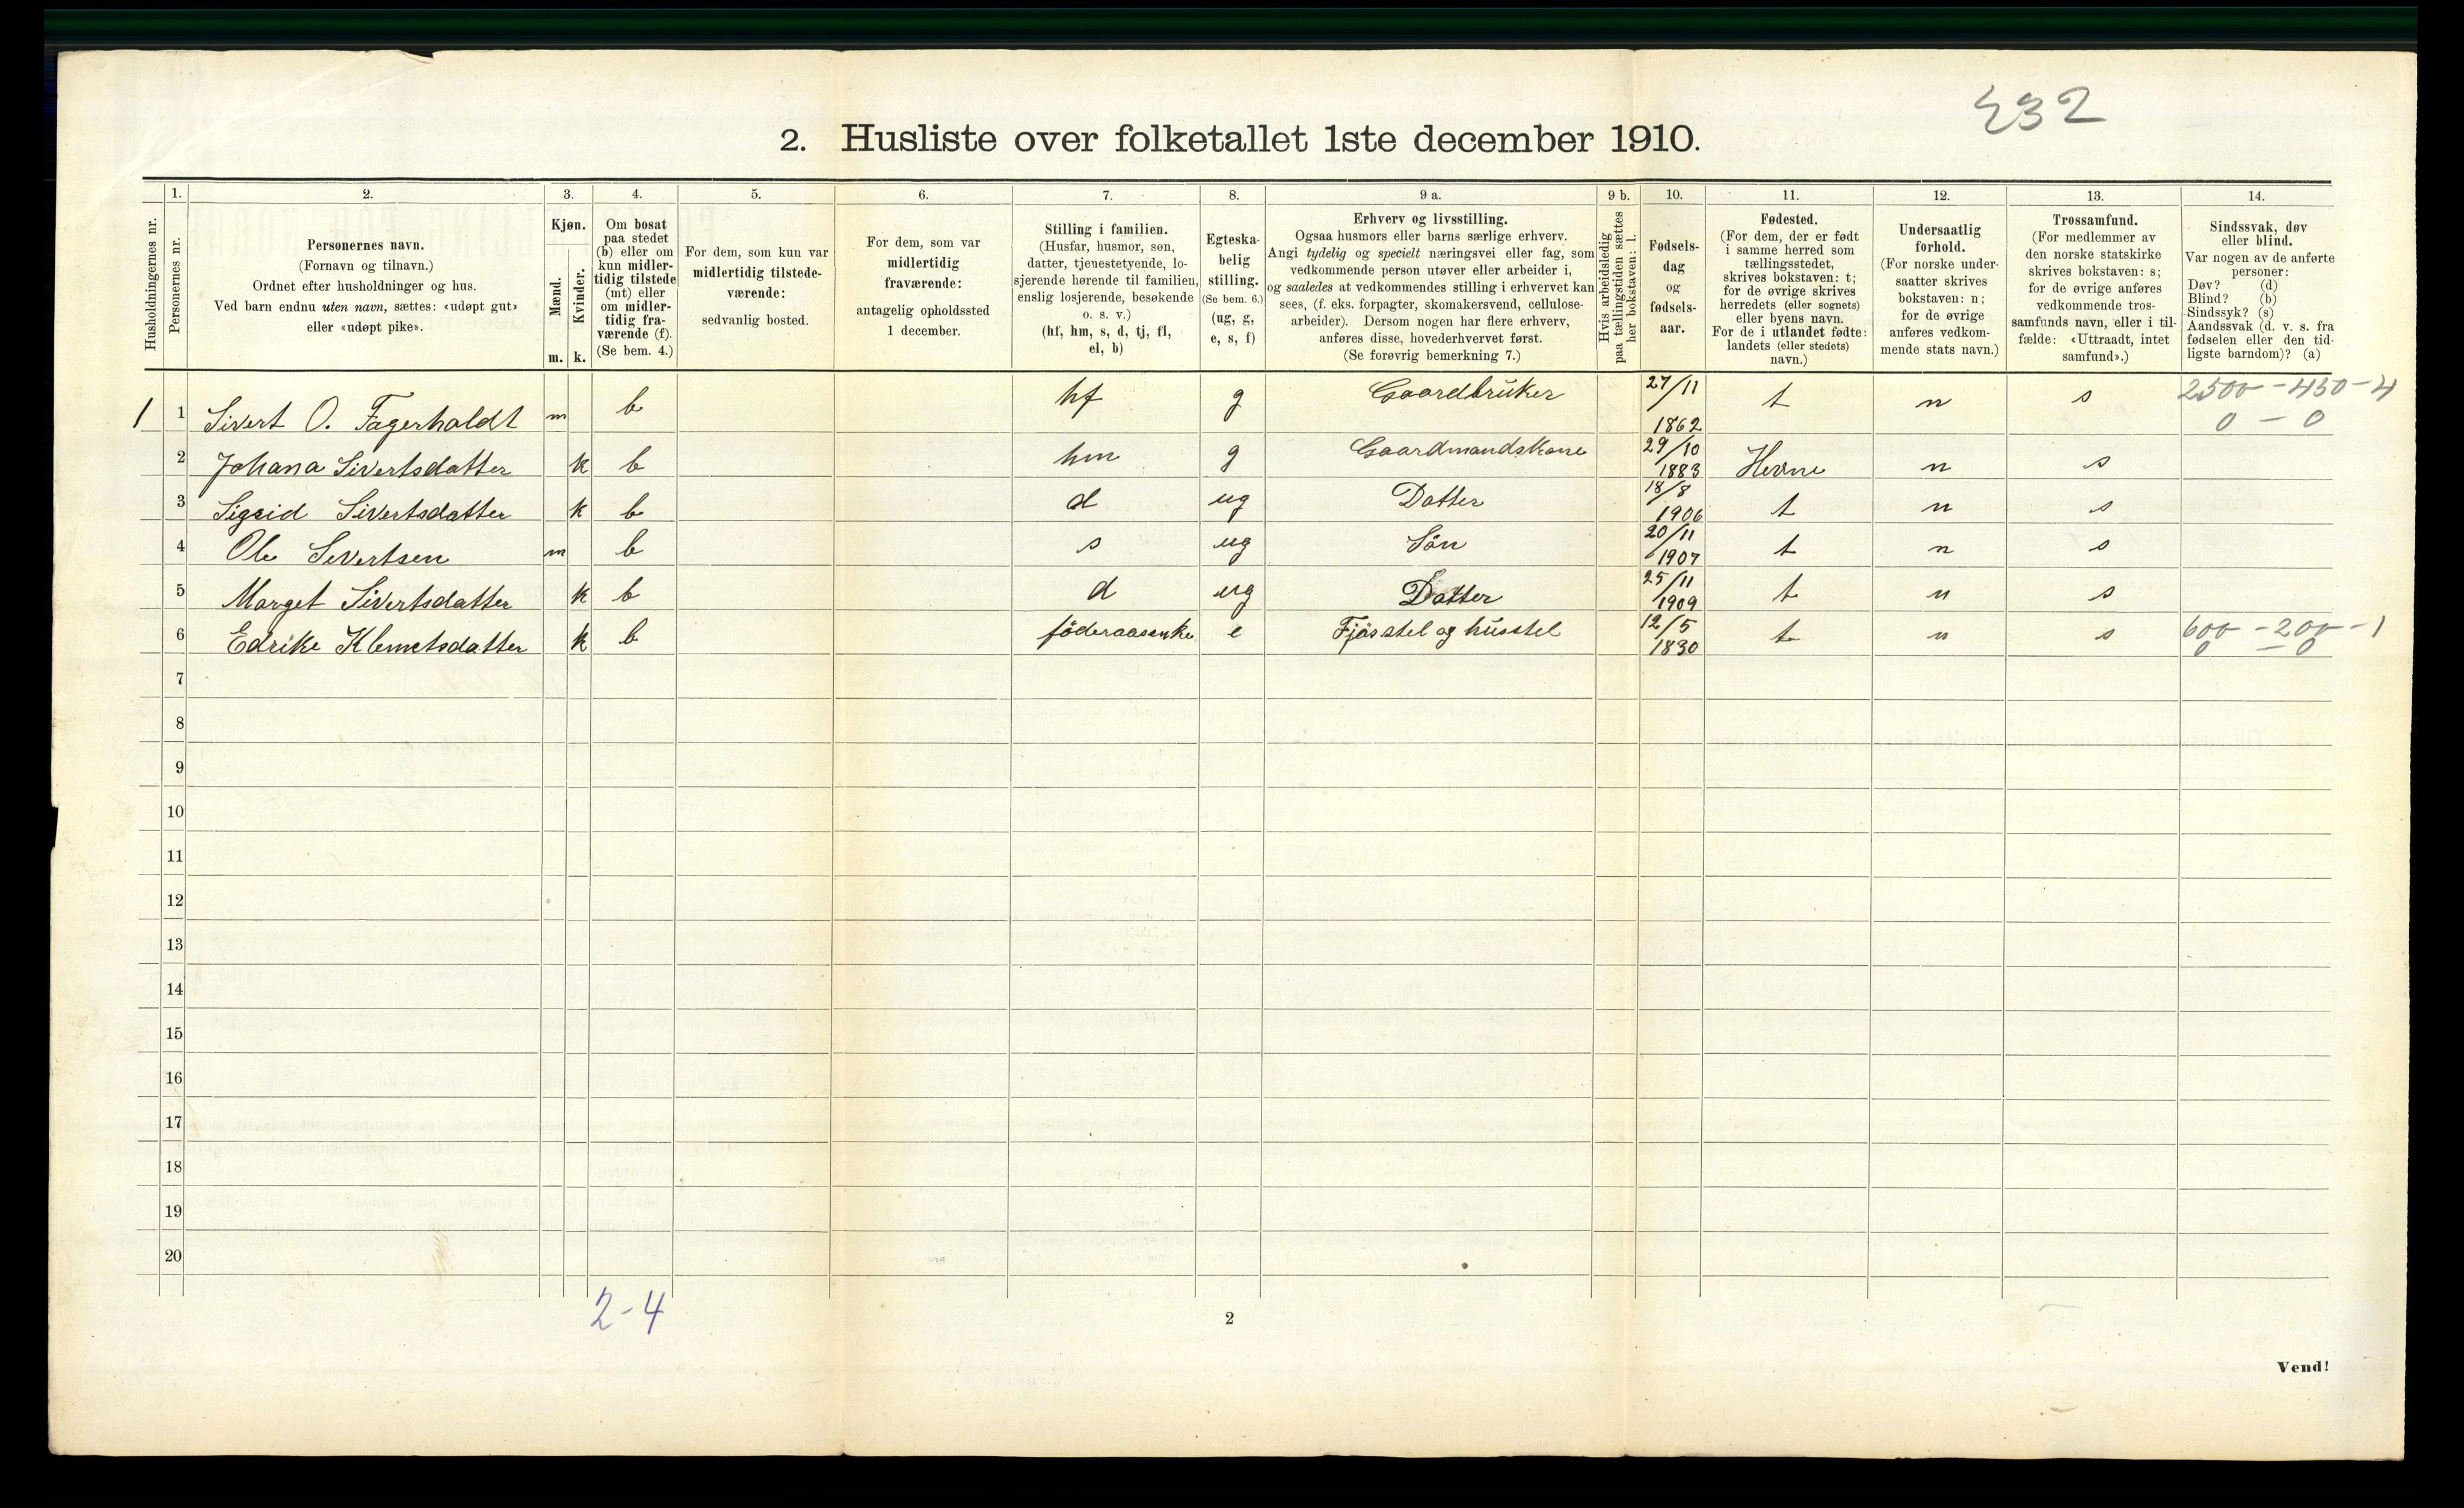 232
2. Husliste over folketallet 1ste december 1910.
1. 2. 3. 4. 5. 6. 7. 8. 9 a. 9 b. 10. 11. 12. 13. 14.
Husholdningernes nr.
Personernes nr.
Personernes navn.
(Fornavn og tilnavn.)
Ordnet efter husholdninger og hus.
Ved barn endnu uten navn, sættes: «udøpt gut»
eller «udøpt pike».
Kjøn.
Mænd.
Kvinder.
m. k.
Om bosat
paa stedet
(b) eller om
kun midler-
tidig tilstede
(mt) eller
om midler-
tidig fra-
værende (f).
(Se bem. 4.)
For dem, som kun var
midlertidig tilstede-
værende:
sedvanlig bosted.
For dem, som var
midlertidig
fraværende:
antagelig opholdssted
1 december.
Stilling i familien.
(Husfar, husmor, søn,
datter, tjenestetyende, lo-
sjerende hørende til familien,
enslig losjerende, besøkende
o. s. v.)
(hf, hm, s, d, tj, fl,
el, b)
Egteska-
belig
stilling.
(Se bem. 6.)
(ug, g,
e, s, f)
Erhverv og livsstilling.
Ogsaa husmors eller barns særlige erhverv.
Angi tydelig og specielt næringsvei eller fag, som
vedkommende person utøver eller arbeider i,
og saaledes at vedkommendes stilling i erhvervet kan
sees, (f. eks. forpagter, skomakersvend, cellulose-
arbeider). Dersom nogen har flere erhverv,
anføres disse, hovederhvervet først.
(Se forøvrig bemerkning 7.)
Hvis arbeidsledig
paa tællingstiden sættes
her bokstaven: l.
Fødsels-
dag
og
fødsels-
aar.
Fødested.
(For dem, der er født
i samme herred som
tællingsstedet,
skrives bokstaven: t;
for de øvrige skrives
herredets (eller sognets)
eller byens navn.
For de i utlandet fødte:
landets (eller stedets)
navn.)
Undersaatlig
forhold.
(For norske under-
saatter skrives
bokstaven: n;
for de øvrige
anføres vedkom-
mende stats navn.)
Trossamfund.
(For medlemmer av
den norske statskirke
skrives bokstaven: s;
for de øvrige anføres
vedkommende tros-
samfunds navn, eller i til-
fælde: «Uttraadt, intet
samfund».)
Sindssvak, døv
eller blind.
Var nogen av de anførte
personer:
Døv? (d)
Blind? (b)
Sindssyk? (s)
Aandssvak (d. v. s. fra
fødselen eller den tid-
ligste barndom)? (a)
1 1 Sivert O. Fagerholdt m b hf g Gaardbruker 27/11 1862 t n s 2500 - 450 - 4
0 - 0
2 Johana Sivertsdatter k b hm g Gaardmandskone 29/10 1883 Hevne n s
3 Sigrid Sivertsdatter k b d ug Datter 18/8 1906 t n s
4 Ole Sivertsen m b s ug Sön 20/11 1907 t n s
5 Marget Sivertsdatter k b d ug Datter 25/11 1909 t n s
6 Edrike Klemetsdatter k b föderaasenke e Fjösstel og husstel 12/5 1830 t n s 600 - 200 - 1
0 - 0
7
8
9
10
11
12
13
14
15
16
17
18
19
20
2-4
2
Vend!